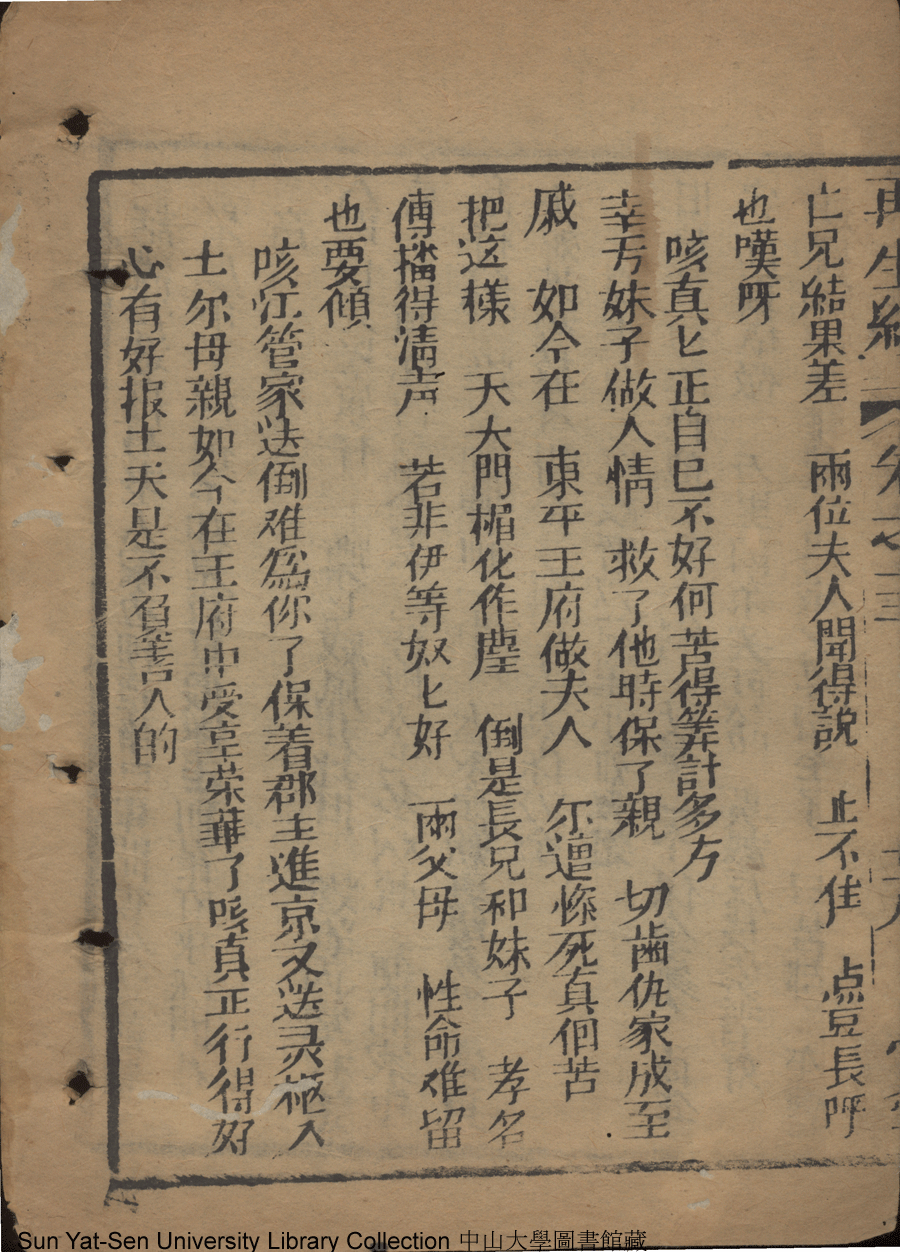 再生緣
卷之三
亡兄結果差　兩位夫人聞得説　止不住　点豆長吁
也嘆呀
咳真匕正自已不好何苦得筭計多方
幸芳妹子做人情　救了他時保了親　切齒仇家成至
戚　如今在　東平王府做夫人　尔遭慘死真個苦
把这樣　天大門楣化作塵　倒是長兄和妹子　孝名
傳播得清声　若非伊等奴匕好　兩父母　性命难留
也要傾
咳江管家迗倒难爲你了保着郡主進京又迗灵柩入
土尔母親如今在王府中受享荣華了咳真正行得好
心有好报土天是不負善人的
Sun Yat-Sen University Library Collection 中山大學圖書館藏